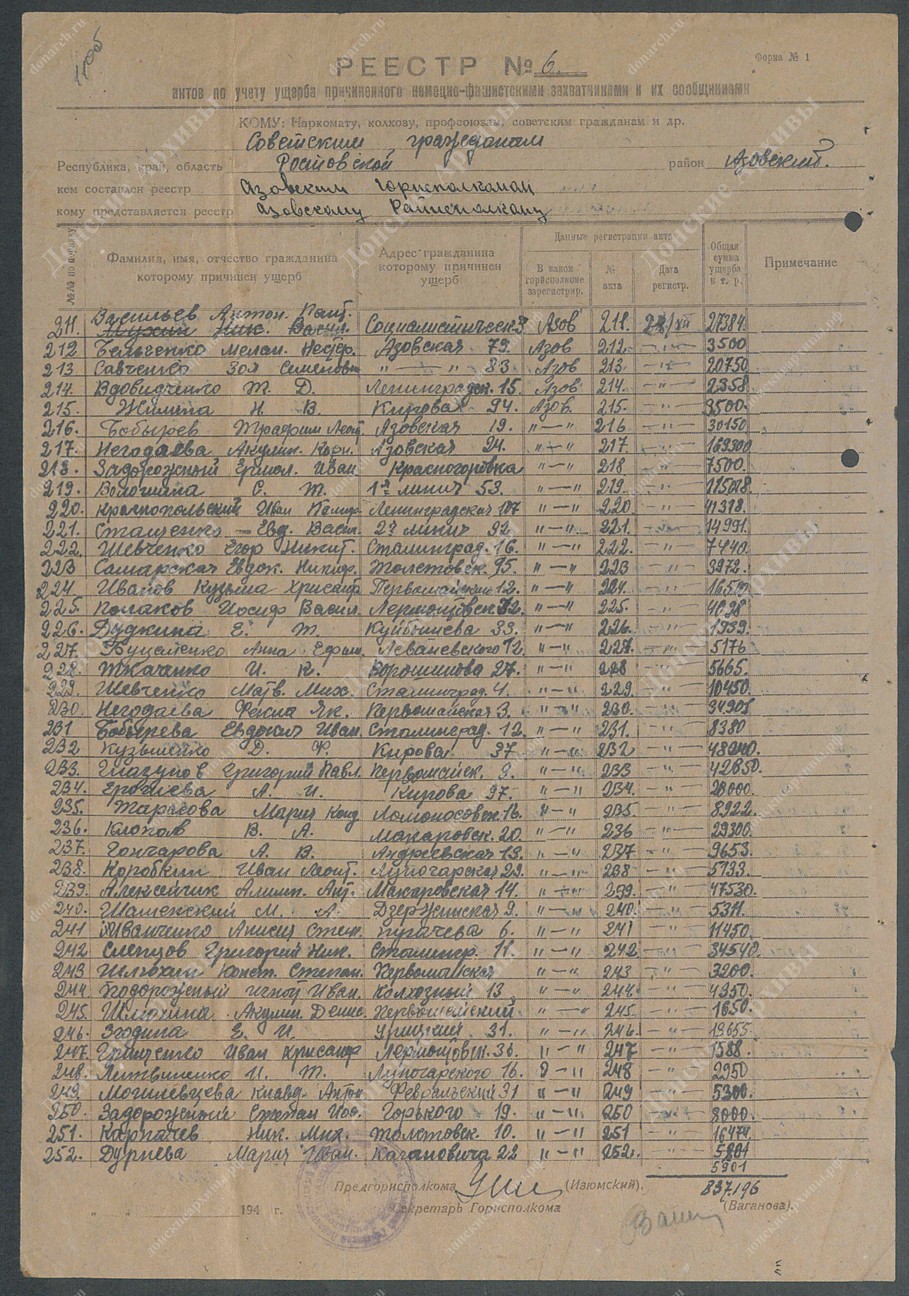 РЕЕСТР № 6
Форма № 1
актов по учету ущерба причиненного немецко-фашистскими захватчиками и их сообщниками
КОМУ: Наркомату, колхозу, профсоюзам, советским гражданам и др.
Советским гражданам
Республика, край, область Ростовской район Азовский
кем составлен реестр Азовским Горисполкомом
кому представляется реестр Азовскому Райисполкому
№№ по порядку Фамилия, имя, отчество гражданина которому причинен ущерб Адрес гражданина которому причинен ущерб Данные регистрации акта Общая сумма ущерба в т. р. Примечание
В каком горисполкоме зарегистрир. № акта Дата регистр.
211. Васильев Антон. Социалистическ. Азов 211. 27384.
212 Мелан. Азовская 79. Азов 212. 3500
213 Савченко Зоя Семеновн " — " 83 Азов 213 — " — 20750
214. Вдовиченко Т. Д. Ленинградск. 15. Азов 214 — " — 2358
215. Жилина Н. В. Кирова 94. Азов. 215. — " — 3500.
216. Бобырев Леон Азовская 19. " — " 216 — " — 30150
217. Негодаева Акулин. Корн. Азовская 24. " — " 217 — " — 169300
218. Задорожный Иван Красногоровка " — " 218 — " — 7500.
219. Волошина С. Т. 1я линия 53. " — " 219. — " —
220. Краснопольский Иван Ленинградская 107 " — " 220 — " — 11318.
221. Сташенко Евд. Васил. 2я линия 92. " — " 221. — " — 14991.
222. Шевченко Егор Никит. Сталинград. 16. " — " 222. — " — 7440.
223 Самарская Евдок. Никиф. Толстовск. 95. " — " 223 — " — 3972.
224. Иванов Кузьма Хрисанф Первомайский 12. " — " 224. — " —
225. Колаков Иосиф Васил. Лермонтовск. 32. " — " 225. — " —
226. Дудкина Е. Т. Куйбышева 33. " — " 226. — " — 1939.
227. Буцаленко Анна Ефим. Леваневского 12. " — " 227. — " — 5176
228. Ткаченко И. К. Ворошилова 27. " — " 228 — " — 5665.
229. Шевченко Матв. Мих. Сталинград. 4. " — " 229. — " — 10450.
230. Негодаева Фекла Як. Первомайская 3. " — " 230. — " — 34905
231 Бобырева Евдокия Иван. Сталинград. 12. " — " 231. — " — 8380
232 Кузьменко Д. Ф. Кирова. 37 " — " 232 — " —
233. Глазунов Григорий Павл. Первомайск. 9. " — " 233 — " — 42850.
234. А. И. Кирова 97. " — " 234. — " — 28000.
235. Тарасова Мария Конд Ломоносовск. 16. " — " 235 — " — 8922.
236. В. А. Макаровск. 20. " — " 236 — " — 29300.
237. Гончарова А. В. Андреевская 13. " — " 237 — " — 9653.
238. Коробкин Иван Леонт. Луночарская 29. " — " 238 — " — 5133.
239. Алексейчик Алимп. Ант. Макаровская 14. " — " 239. — " — 47530.
240. М. А. Дзержинская 9. " — " 240. — " — 5311.
241 Иванченко Анисия Степ. Пугачева 6. " — " 241 — " — 11450.
242 Слепцов Григорий Ник. Сталингр. 11. " — " 242 — " — 34540.
243 Илюхин Конст. Степан. Первомайская " — " 243 — " — 3200.
244. Подорожный Игнат Иван. Колхозный 13 " — " 244. — " — 4350.
245. Акулин. Денис. Первомайский. " — " 245. — " — 1650.
246. Згодина Е. И. Урицкий 31. " — " 246. — " — 19655.
247. Грищенко Иван Крисанф Лермонтовск. 36. " — " 247 — " — 1588.
248. Литвиненко И. Т. Луночарского 16. " — " 248 — " — 2950
249. Могилевцева Клавд. Антон Февральский 31 " — " 249 — " — 5300.
250. Задорожный Степан Иос. Горького 19. " — " 250 — " — 8000.
251. Карпачев Ник. Мих. Толстовск. 10. " — " 251 — " — 16474.
252. Дурнева Мария Иван. Кагановича 22 " — " 252. — " — 5801
5901
Предгорисполкома (Изюмский). 837196
" " 194 г. Секретарь Горисполкома (Ваганова).